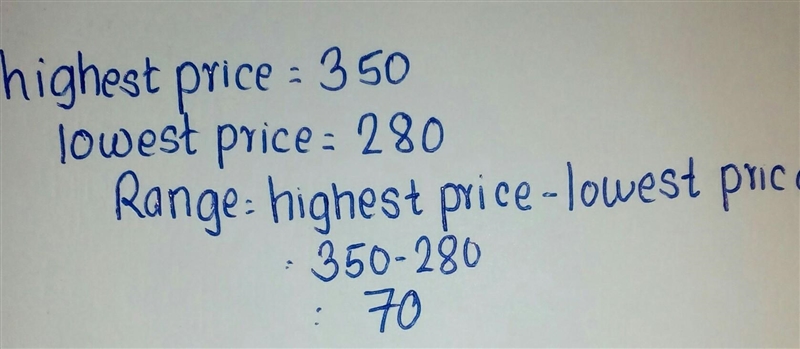 highest price = 350
lowest price = 280
Range = highest price - lowest price
= 350 - 280
= 70